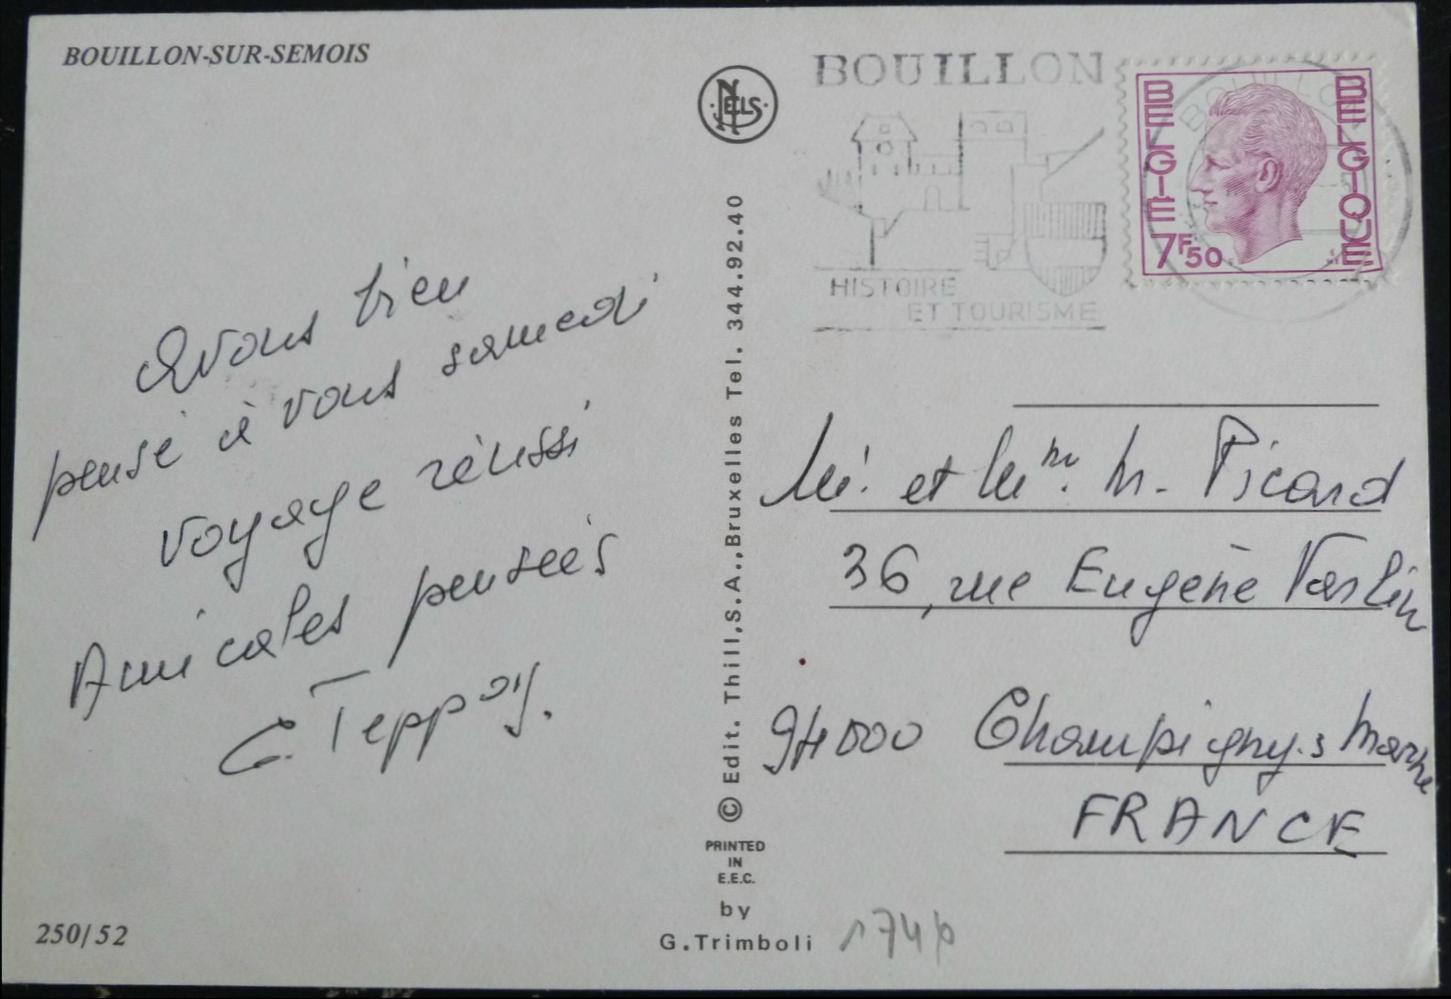 BOUILLON-SUR-SEMOIS
Avons bien
pensé à vous samedi
voyage réussi
Amicales pensées
C. Teppoy.
250/52
NELS
© Edit. Thill, S.A., Bruxelles Tel. 344.92.40
PRINTED
IN
E.E.C.
by
G.Trimboli
BOUILLON
HISTOIRE
ET TOURISME
BELGIE
BELGIQUE
7F50
BOUILLON
Mr. et Mme. M. Picard
36, rue Eugène Varlin
94500 Champigny.s Marne
FRANCE